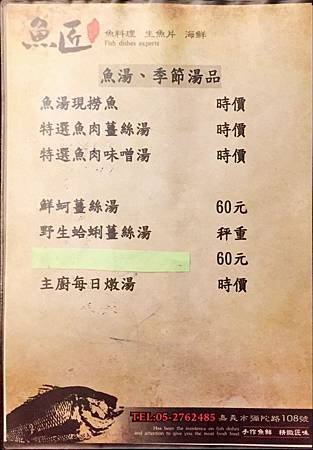 魚匠 魚料理 生魚片 海鮮
Fish dishes experts
魚湯、季節湯品
魚湯現撈魚 時價
特選魚肉薑絲湯 時價
特選魚肉味噌湯 時價
鮮蚵薑絲湯 60元
野生蛤蜊薑絲湯 秤重
60元
主廚每日燉湯 時價
TEL:05-2762485 嘉義市彌陀路108號
Has been the insistence on fish dishes
and attention to give you the most fresh food
手作魚鮮 精緻匠味